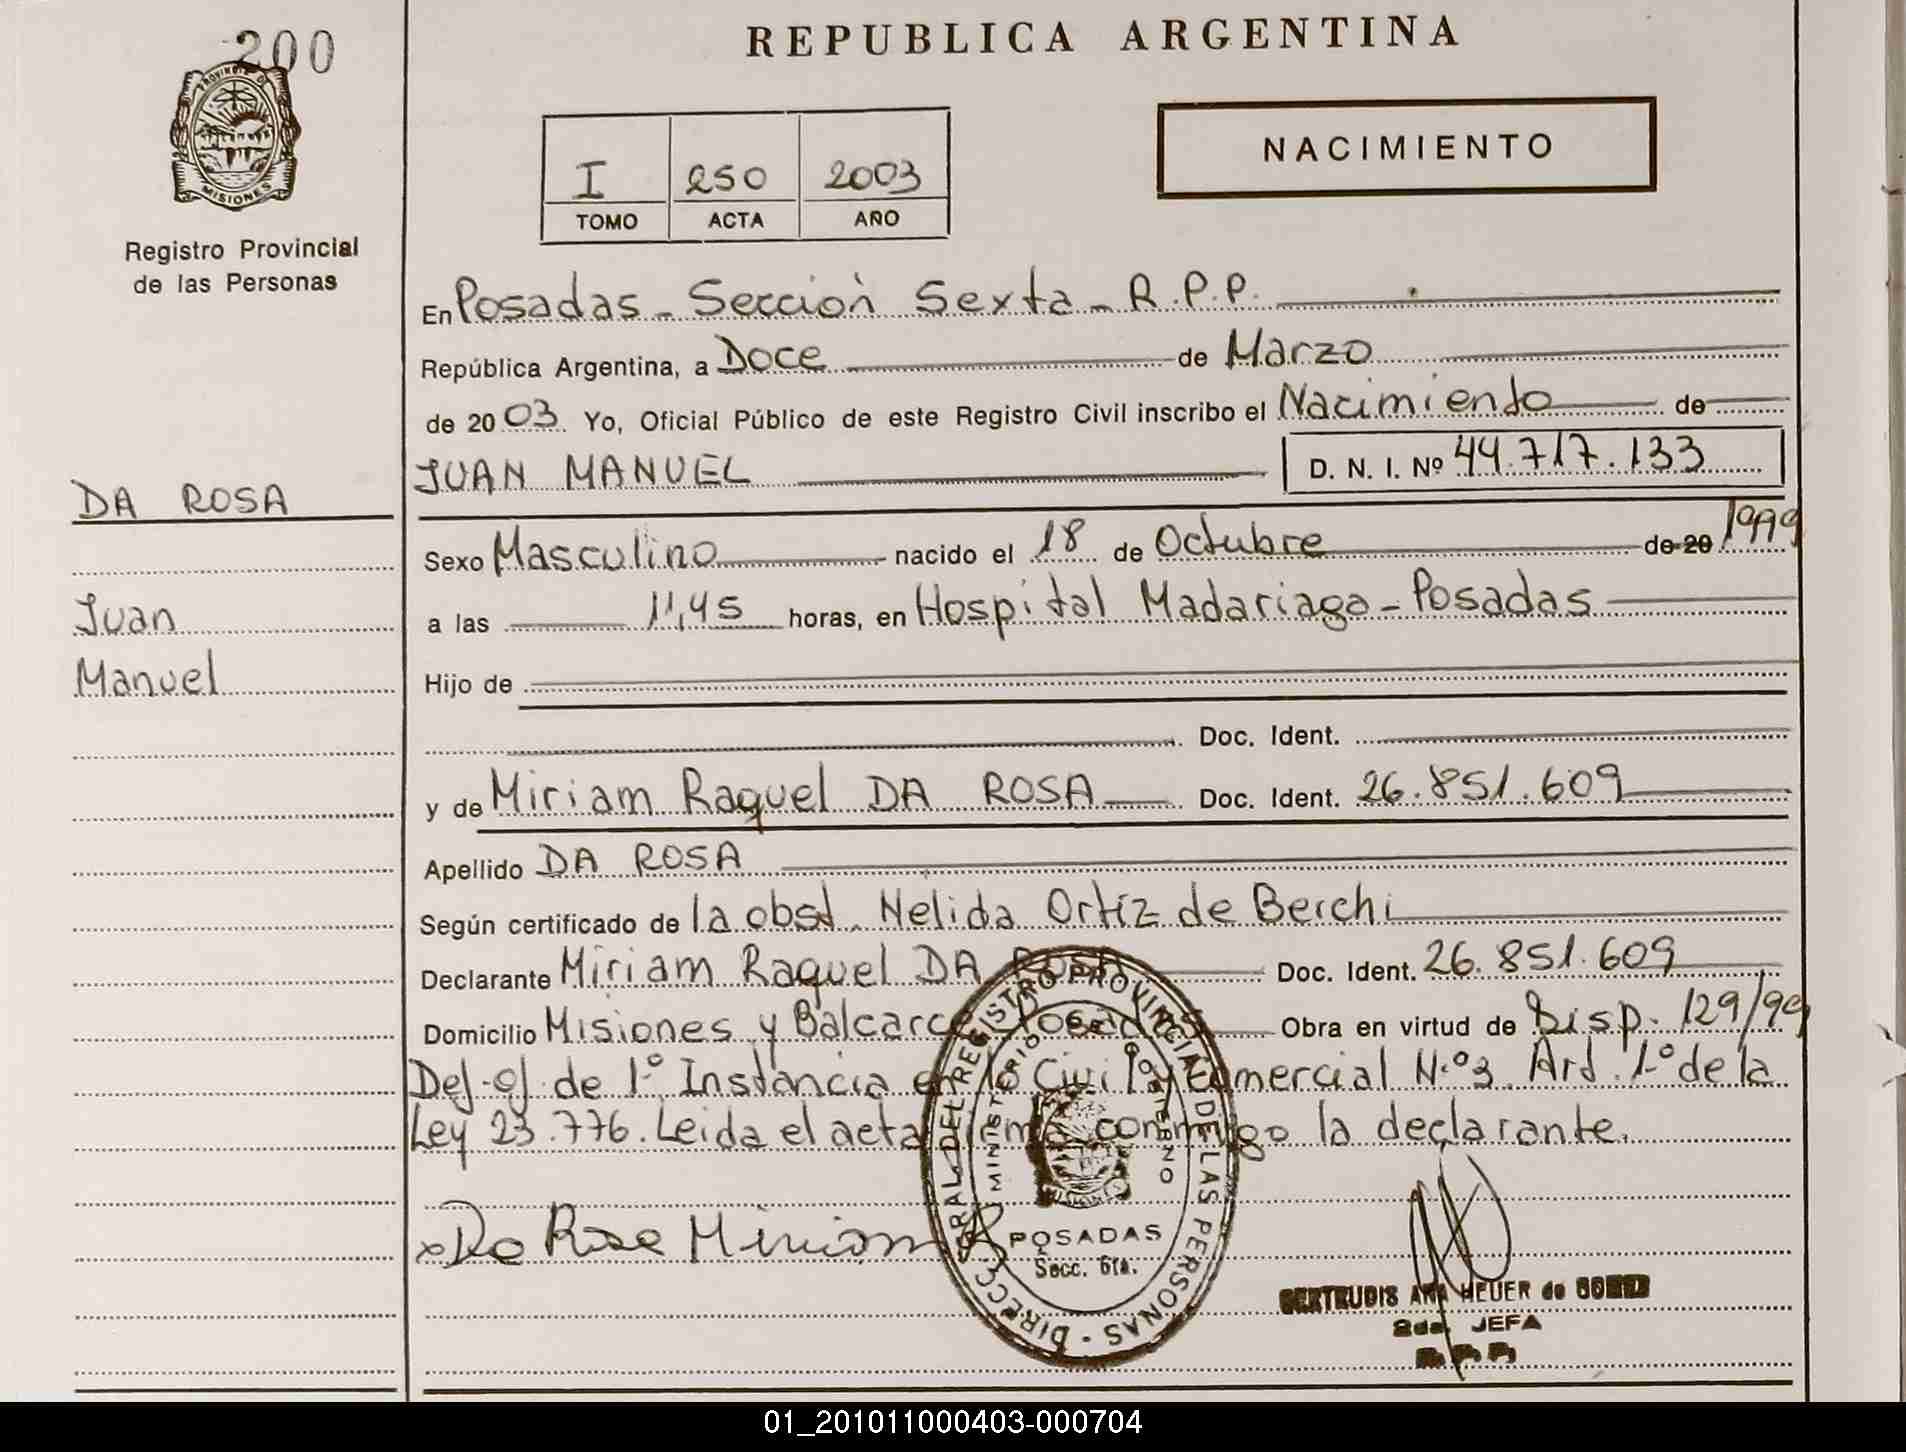 200
REPUBLICA ARGENTINA
PROVINCIA DE
MISIONES
Registro Provincial
de las Personas
I 250 2003
TOMO ACTA AÑO
NACIMIENTO
En Posadas - Sección Sexta - R.P.P.
República Argentina, a Doce de Marzo
de 2003. Yo, Oficial Público de este Registro Civil inscribo el Nacimiento de
JUAN MANUEL D. N. I. Nº 44.717.133
DA ROSA
Sexo Masculino nacido el 18 de Octubre de 20 1999
Juan
a las 11,45 horas, en Hospital Madariaga - Posadas
Manuel
Hijo de
Doc. Ident.
y de Miriam Raquel DA ROSA Doc. Ident. 26.851.609
Apellido DA ROSA
Según certificado de la obst. Nelida Ortiz de Berchi
Declarante Miriam Raquel DA ROSA Doc. Ident. 26.851.609
Domicilio Misiones y Balcarce Posadas Obra en virtud de Disp. 129/99
de 1º Instancia en lo Civil y Comercial N.º3. Art. 1º de la
Ley 23.776. Leida el acta firma conmigo la declarante.
Da Rosa Miriam R
DIRECC. GRAL. DEL REGISTRO PROVINCIAL DE LAS PERSONAS
MINISTERIO GOBIERNO
POSADAS
Secc. 6ta.
GERTRUDIS ANA HEUER de GOMEZ
2da. JEFA
01_201011000403-000704